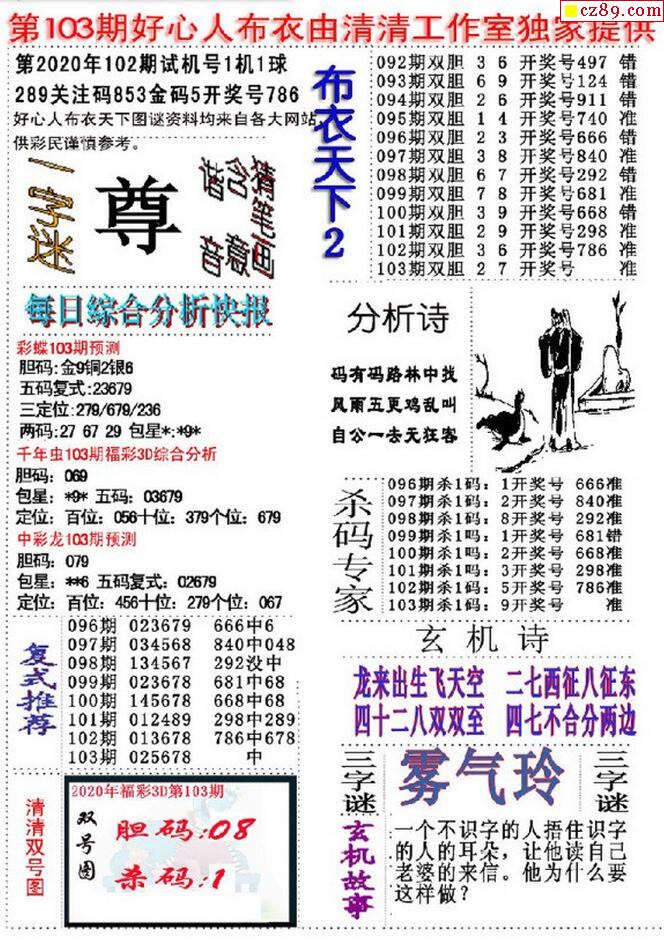 cz89.com
第103期好心人布衣由清清工作室独家提供
第2020年102期试机号1机1球
289关注码853金码5开奖号786
好心人布衣天下图谜资料均来自各大网站,
供彩民谨慎参考。
一字谜
尊
猜笔画
含意
谐音
布衣天下2
092期双胆 3 6 开奖号497 错
093期双胆 6 9 开奖号124 错
094期双胆 2 6 开奖号911 错
095期双胆 1 4 开奖号740 准
096期双胆 2 3 开奖号666 错
097期双胆 3 8 开奖号840 准
098期双胆 6 7 开奖号292 错
099期双胆 7 8 开奖号681 准
100期双胆 3 9 开奖号668 错
101期双胆 2 9 开奖号298 准
102期双胆 3 6 开奖号786 准
103期双胆 2 7 开奖号 准
每日综合分析快报
彩蝶103期预测
胆码:金9铜2银6
五码复式:23679
三定位:279/679/236
两码:27 67 29 包星*:*9*
千年虫103期福彩3D综合分析
胆码: 069
包星: *9* 五码: 03679
定位: 百位: 056十位: 379个位: 679
中彩龙103期预测
胆码: 079
包星: **6 五码复式: 02679
定位: 百位: 456十位: 279个位: 067
分析诗
码有码路林中找
风雨五更鸡乱叫
自公一去天狂客
杀码专家
096期杀1码: 1开奖号 666准
097期杀1码: 2开奖号 840准
098期杀1码: 8开奖号 292准
099期杀1吗: 1开奖号 681错
100期杀1吗: 2开奖号 668准
101期杀1吗: 3开奖号 298准
102期杀1码: 5开奖号 786准
103期杀1码: 9开奖号 准
复式推荐
096期 023679 666中6
097期 034568 840中048
098期 134567 292没中
099期 023678 681中68
100期 145678 668中68
101期 012489 298中289
102期 013678 786中678
103期 025678 中
玄机诗
龙来出生飞天空 二七西征八征东
四十二八双双至 四七不合分两边
三字谜
雾气玲
三字谜
清清双号图
2020年福彩3D第103期
双号图
胆码:08
杀码:1
玄机故事
一个不识字的人捂住识字
的人的耳朵, 让他读自己
老婆的来信。他为什么要
这样做?